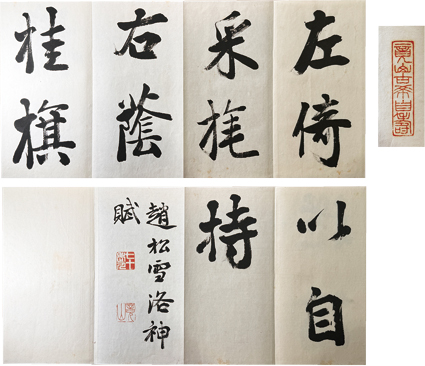 左倚
采旄
右蔭
桂旗
以自
持
趙松雪洛神
賦